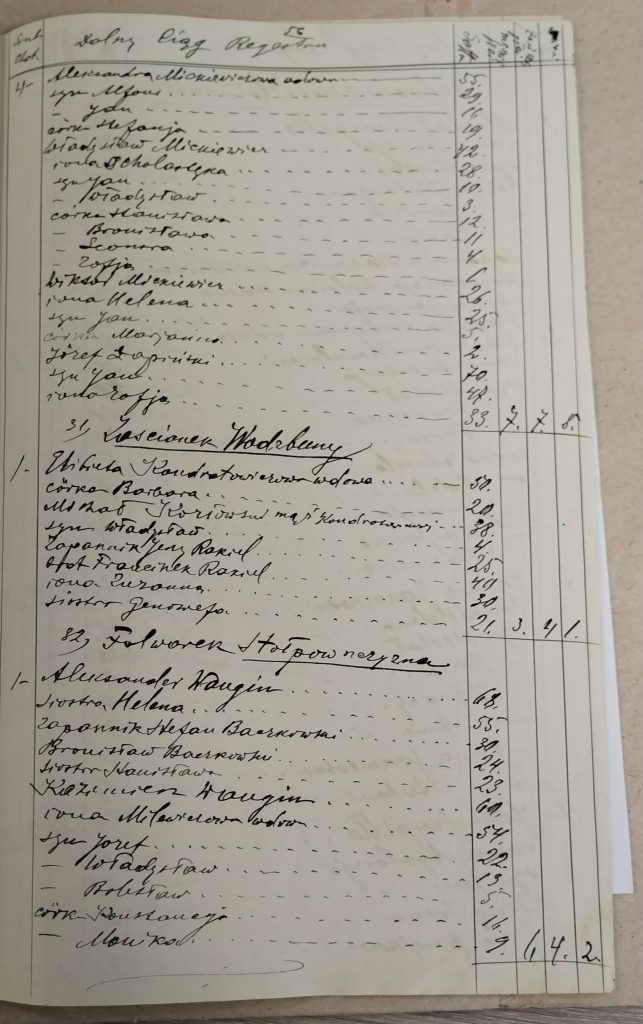 56
Dalszy Ciąg Regestru
4- Aleksandra Mickiewiczowa wdowa 55.
syn Alfons 29.
- Jan 16
córka Stefanja 19.
Władysław Mickiewicz 42.
żona Scholastyka 28.
syn Jan 10.
- Władysław 3.
córka Stanisława 12.
- Bronisława 11
- Leonora 4.
- Zofja 6
Wiktor Mickiewicz 26.
żona Helena 25.
syn Jan 5.
córka Marjanna 2.
Józef Łapiński 70.
syn Jan 47.
żona Zofja 33. 7. 7. 8.
81) Zaścianek Wodzbuny
1- Elżbieta Kondratowiczowa wdowa 50.
córka Barbara 20.
Michał Kozłowski mąż 38.
syn Władysław 4.
Zapaśnik Jerzy Rakiel 25.
brat Franciszek Rakiel 40
żona Zuzanna 30.
siostra Genowefa 21. 3. 4 1.
82) Folwarek Stołpowszczyzna
1- Aleksander Wangin 68.
siostra Helena 55.
Stefan Baczkowski 30.
Bronisław Baczkowski 24.
siostra Stanisława 23.
Kazimierz Wangin 60.
żona Milewiczowa wdowa 54.
syn Józef 22.
- Władysław 13
- Bolesław 5.
córka Konstancja 16.
- Monika 9. 6 4. 2.